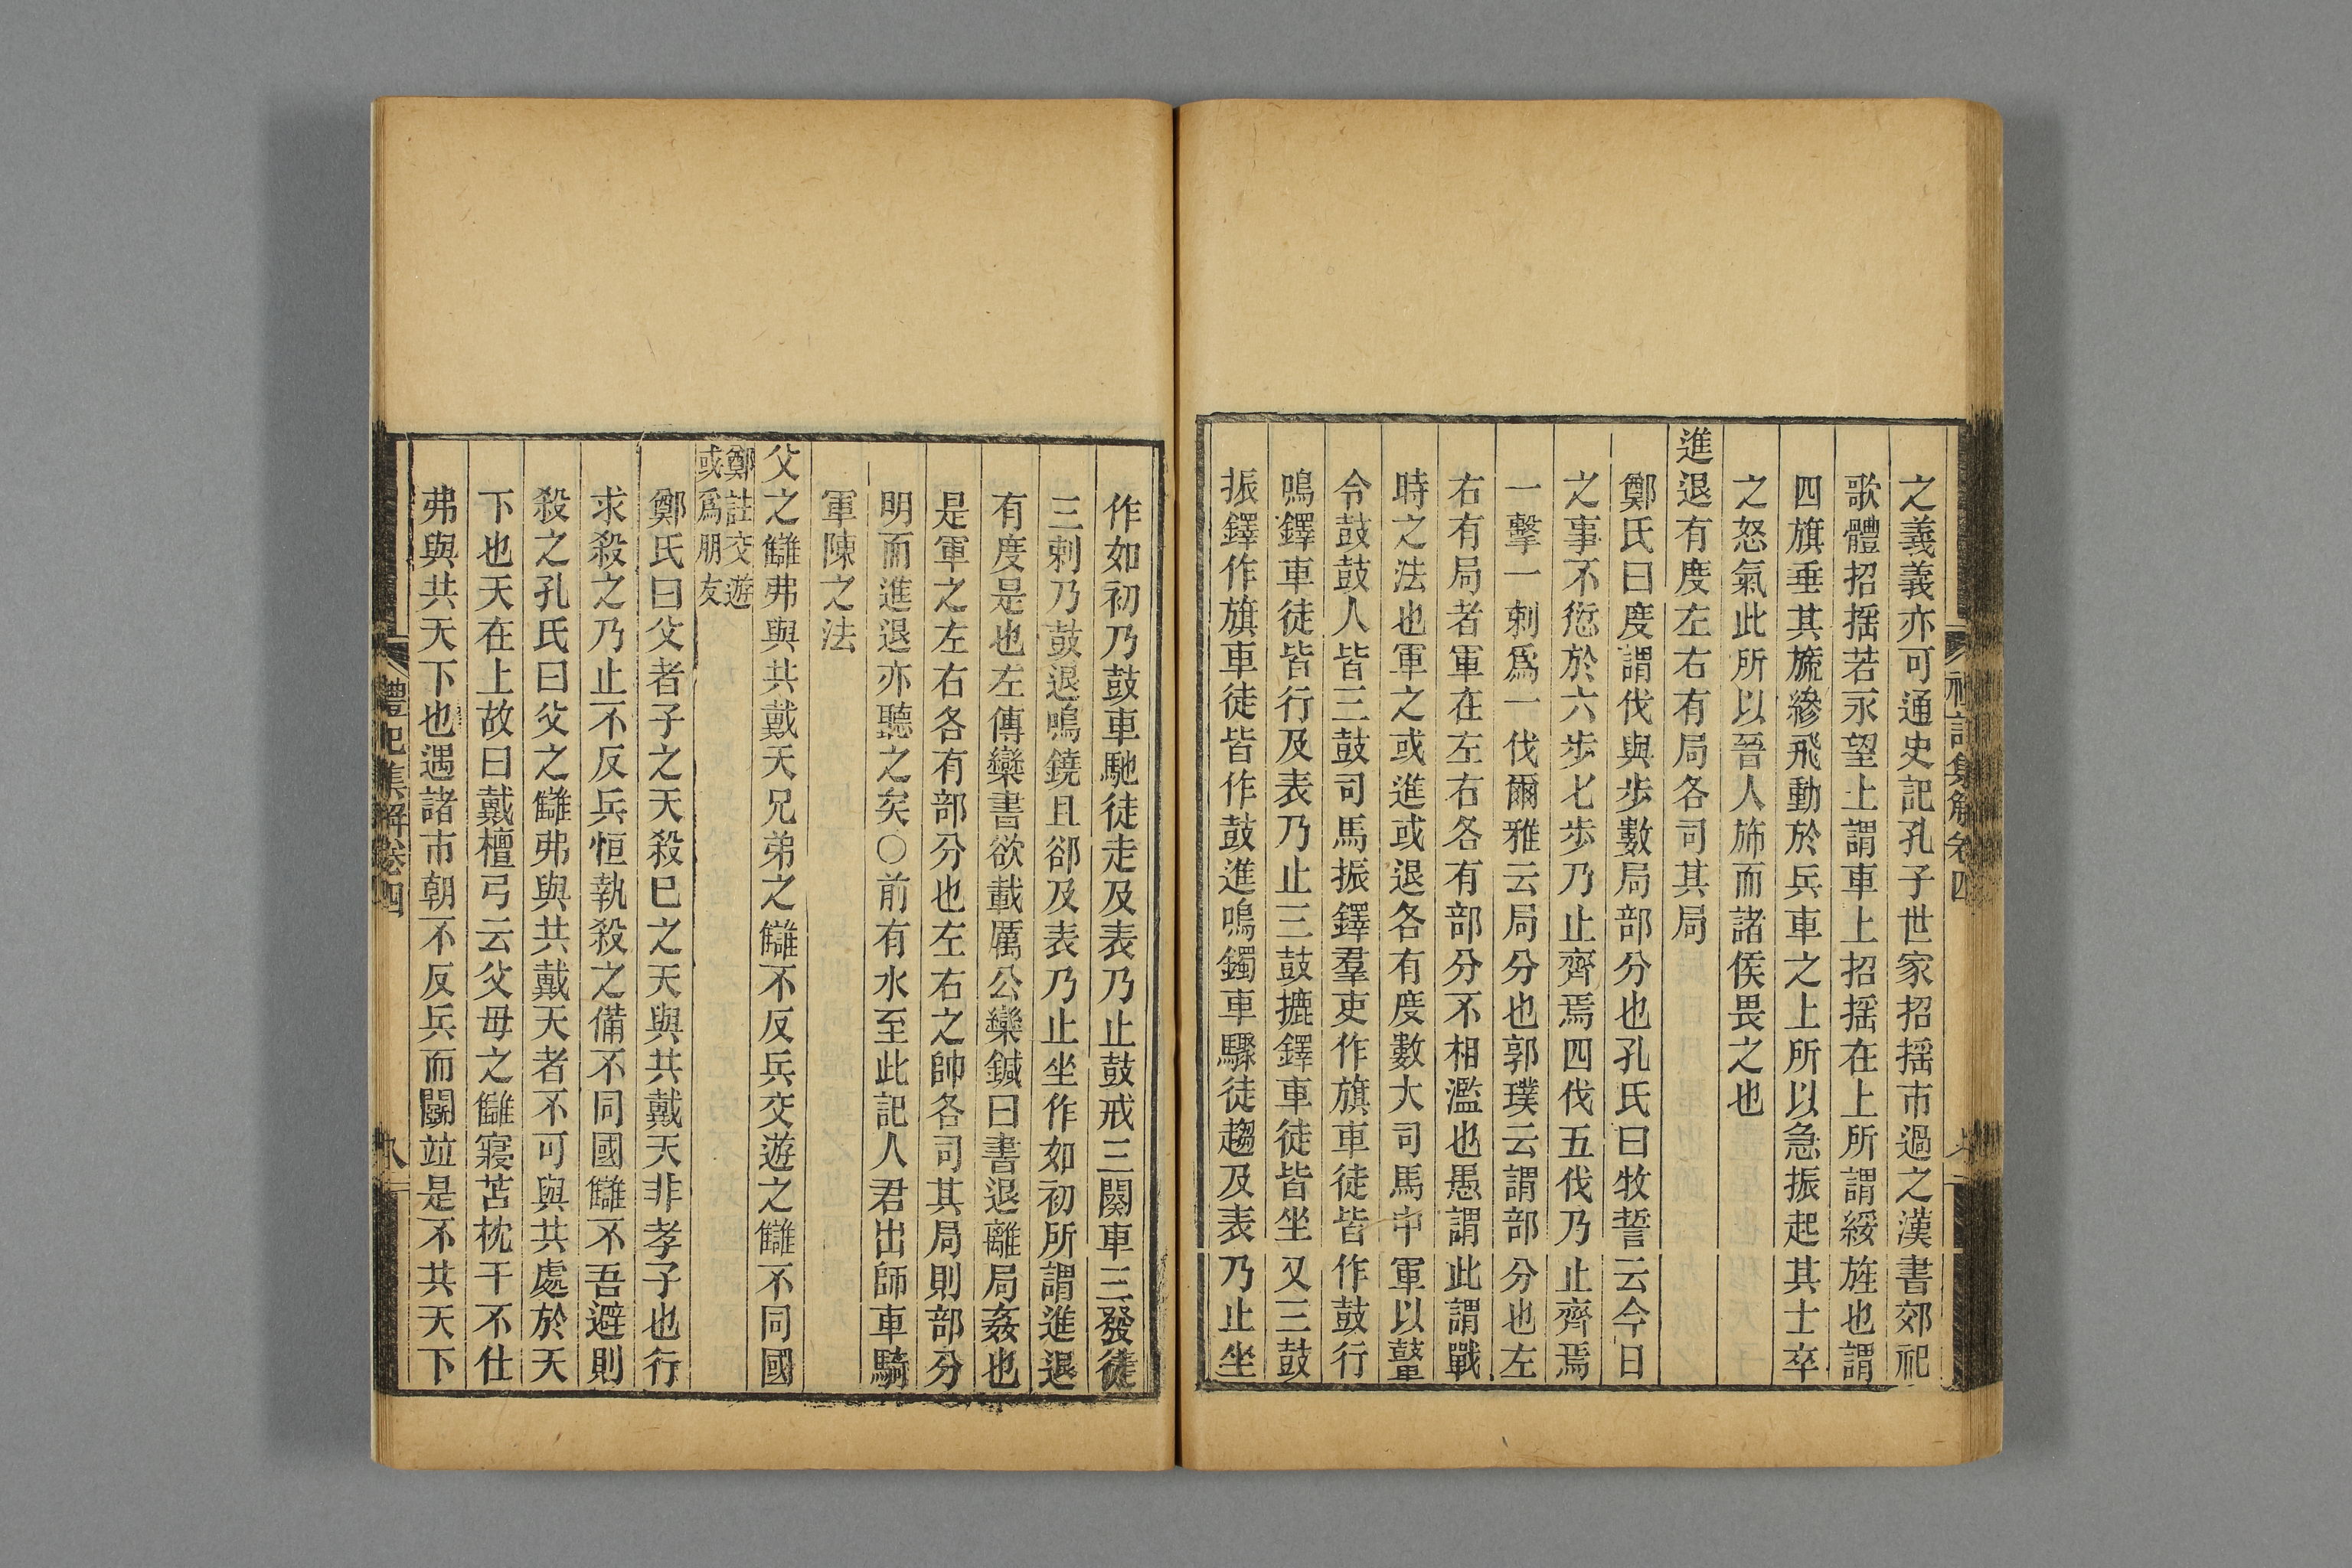 之義義亦可通史記孔子世家招揺市過之漢書郊祀
歌體招揺若永望上謂車上招揺在上所謂綏旌也謂
四旗垂其旒縿飛動於兵車之上所以急振起其士卒
之怒氣此所以晉人斾而諸侯畏之也
進退有度左右有局各司其局
鄭氏曰度謂伐與步數局部分也孔氏曰牧誓云今日
之事不愆於六步七步乃止齊焉四伐五伐乃止齊焉
一擊一刺爲一伐爾雅云局分也郭璞云謂部分也左
右有局者軍在左右各有部分不相濫也愚謂此謂戰
時之法也軍之或進或退各有度數大司馬中軍以鼙
令鼓鼓人皆三鼓司馬振鐸羣吏作旗車徒皆作鼓行
鳴鐸車徒皆行及表乃止三鼓摝鐸車徒皆坐又三鼓
振鐸作旗車徒皆作鼓進鳴鐲車驟徒趨及表乃止坐
禮記集解卷四
作如初乃鼓車馳徒走及表乃止鼓戒三闋車三發徒
三刺乃鼓退鳴鐃且郤及表乃止坐作如初所謂進退
有度是也左傳欒書欲載厲公欒鍼曰書退離局姦也
是軍之左右各有部分也左右之帥各司其局則部分
明而進退亦聽之矣○前有水至此記人君出師車騎
軍陳之法
父之讎弗與共戴天兄弟之讎不反兵交遊之讎不同國
鄭註交遊
或爲朋友
鄭氏曰父者子之天殺已之天與共戴天非孝子也行
求殺之乃止不反兵恒執殺之備不同國讎不吾避則
殺之孔氏曰父之讎弗與共戴天者不可與共處於天
下也天在上故曰戴檀弓云父母之讎寢苫枕干不仕
弗與共天下也遇諸市朝不反兵而鬬竝是不共天下
禮記集解卷四
八